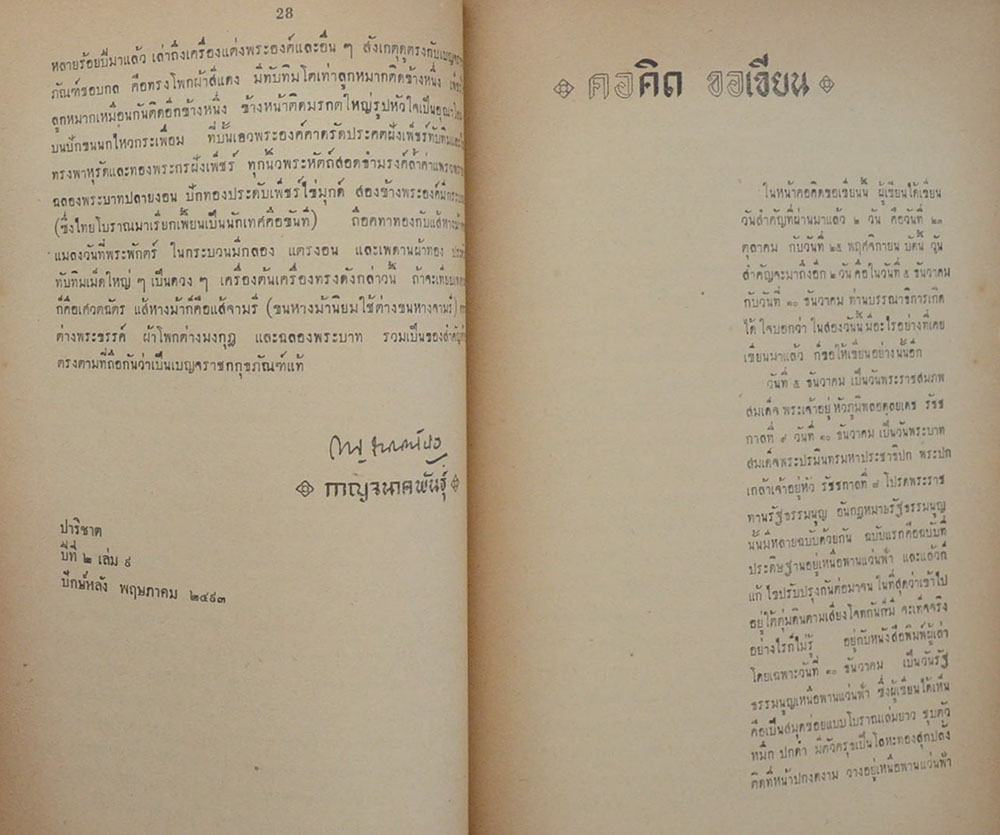 28
หลายร้อยปีมาแล้ว เล่าถึงเครื่องแต่งพระองค์และอื่น ๆ สังเกตดูตรงกับเบญจราช
ภัณฑ์ชอบกล คือทรงโพกผ้าสีแดง มีทับทิมโตเท่าลูกหมากติดข้างหนึ่ง
ลูกหมากเหมือนกันติดอีกข้างหนึ่ง ข้างหน้าติดมรกตใหญ่รูปหัวใจเป็นอุณาโลม
บนปักขนนกไหวกระเพื่อม ที่บั้นเอวพระองค์คาดรัดประคดฝังเพ็ชร์ทับทิมและ
ทรงพาหุรัดและทองพระกรฝังเพ็ชร์ ทุกนิ้วพระหัตถ์สอดธำมรงค์ล้ำค่าแพรวพราว
ฉลองพระบาทปลายงอน ปักทองประดับเพ็ชร์ไข่มุกด์ สองข้างพระองค์มี
(ซึ่งไทยโบราณมาเรียกเพี้ยนเป็นนักเทศคือขันที) ถือคทาทองกับแส้หางม้า
แมลงวันที่พระพักตร์ ในกระบวนมีกลอง แตรงอน และเพดานผ้าทอง
ทับทิมเม็ดใหญ่ ๆ เป็นดวง ๆ เครื่องต้นเครื่องทรงดังกล่าวนี้ ถ้าจะเทียบ
ก็คือเศวตฉัตร แส้หางม้าก็คือแส้จามรี (ขนหางม้านิยมใช้ต่างขนหางจามรี)
ต่างพระขรรค์ ผ้าโพกต่างมงกุฎ และฉลองพระบาท รวมเป็นของสำคัญห้า
ตรงตามที่ถือกันว่าเป็นเบญจราชกกุธภัณฑ์แท้
กาญจนาคพันธุ์
ปาริชาต
ปีที่ ๒ เล่ม ๙
ปักษ์หลัง พฤษภาคม ๒๔๙๓
คอคิด ขอเขียน
ในหน้าคอคิดขอเขียนนี้ ผู้เขียนได้เขียน
วันสำคัญที่ผ่านมาแล้ว ๒ วัน คือวันที่ ๒๓
ตุลาคม กับวันที่ ๒๕ พฤศจิกายน บัดนี้ วัน
สำคัญจะมาถึงอีก ๒ วัน คือในวันที่ ๕ ธันวาคม
กับวันที่ ๑๐ ธันวาคม ท่านบรรณาธิการเกิด
ได้ ใจบอกว่า ในสองวันนี้ มีอะไรอย่างที่เคย
เขียนมาแล้ว ก็ขอให้เขียนอย่างนั้นอีก
วันที่ ๕ ธันวาคม เป็นวันพระราชสมภพ
สมเด็จ พระเจ้าอยู่ หัวภูมิพลอดุลยเดช รัชช
กาลที่ ๙ วันที่ ๑๐ ธันวาคม เป็นวันพระบาท
สมเด็จพระปรมินทรมหาประชาธิปก พระปก
เกล้าเจ้าอยู่หัว รัชชกาลที่ ๗ โปรดพระราช
ทานรัฐธรรมนูญ อันกฎหมายรัฐธรรมนูญ
นั้นมีหลายฉบับด้วยกัน ฉบับแรกคือฉบับที่
ประดิษฐานอยู่เหนือพานแว่นฟ้า และแล้วก็
แก้ ไขปรับปรุงกันต่อมาจน ในที่สุดว่าเข้าไป
อยู่ใต้ตุ่มดินตามเสียงโจทกันก็มี จะเท็จจริง
อย่างไรก็ไม่รู้ อยู่กับหนังสือพิมพ์ผู้เล่า
โดยเฉพาะวันที่ ๑๐ ธันวาคม เป็นวันรัฐ
ธรรมนูญเหนือพานแว่นฟ้า ซึ่งผู้เขียนได้เห็น
คือเป็นสมุดข่อยแบบโบราณเล่มยาว ชุบตัว
หมึก ปกดำ มีตัวครุธเป็นโลหะทองสุกปลั่ง
ติดที่หน้าปกงดงาม วางอยู่เหนือพานแว่นฟ้า